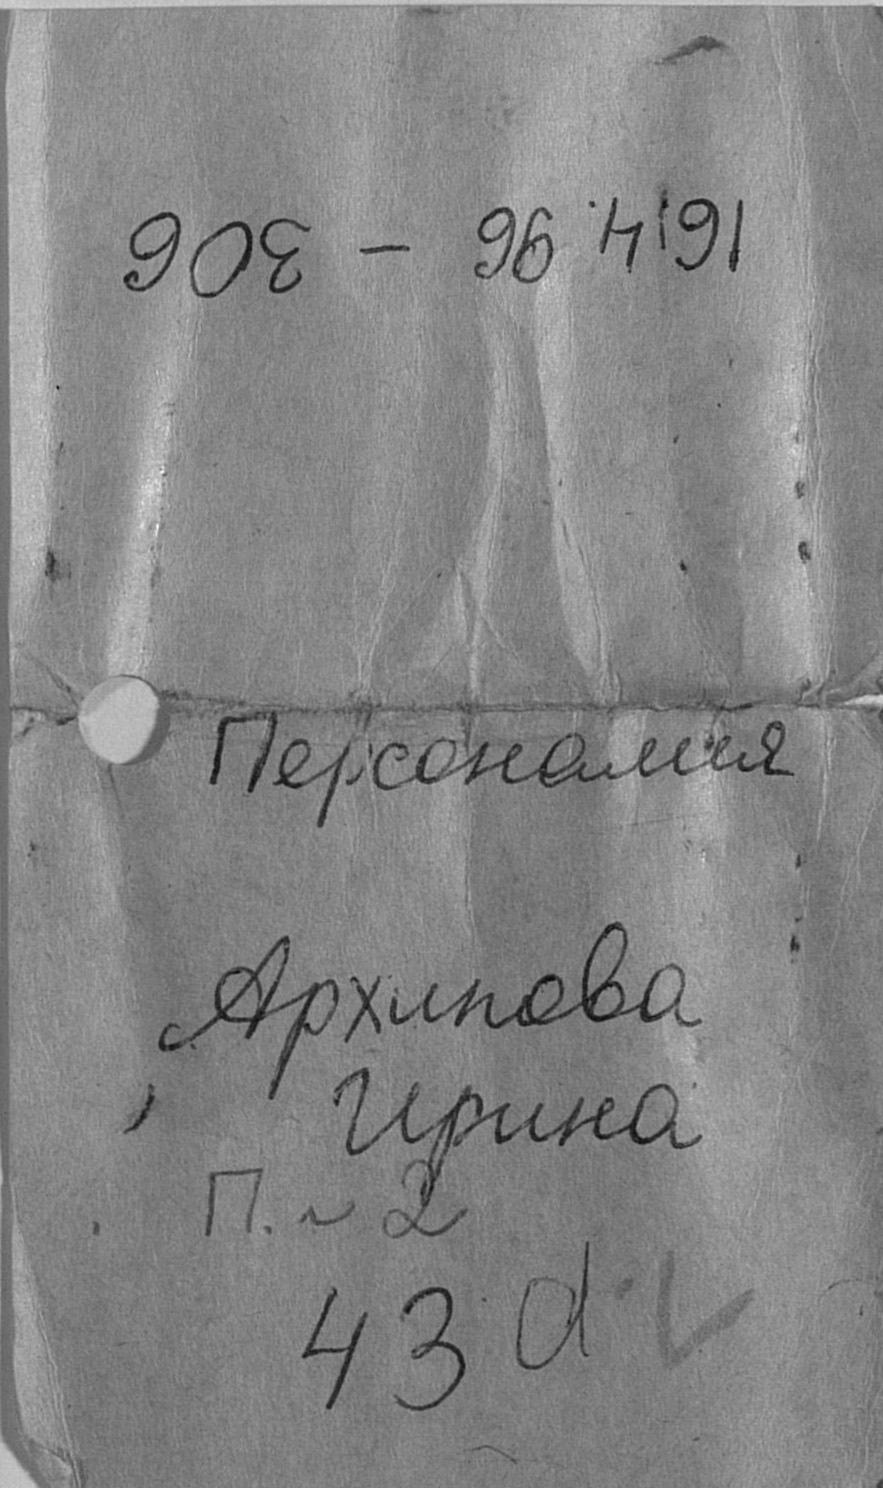 16.4.96 – 306
Персоналия
Архипова
Ирина
П. ~ 2
43 d